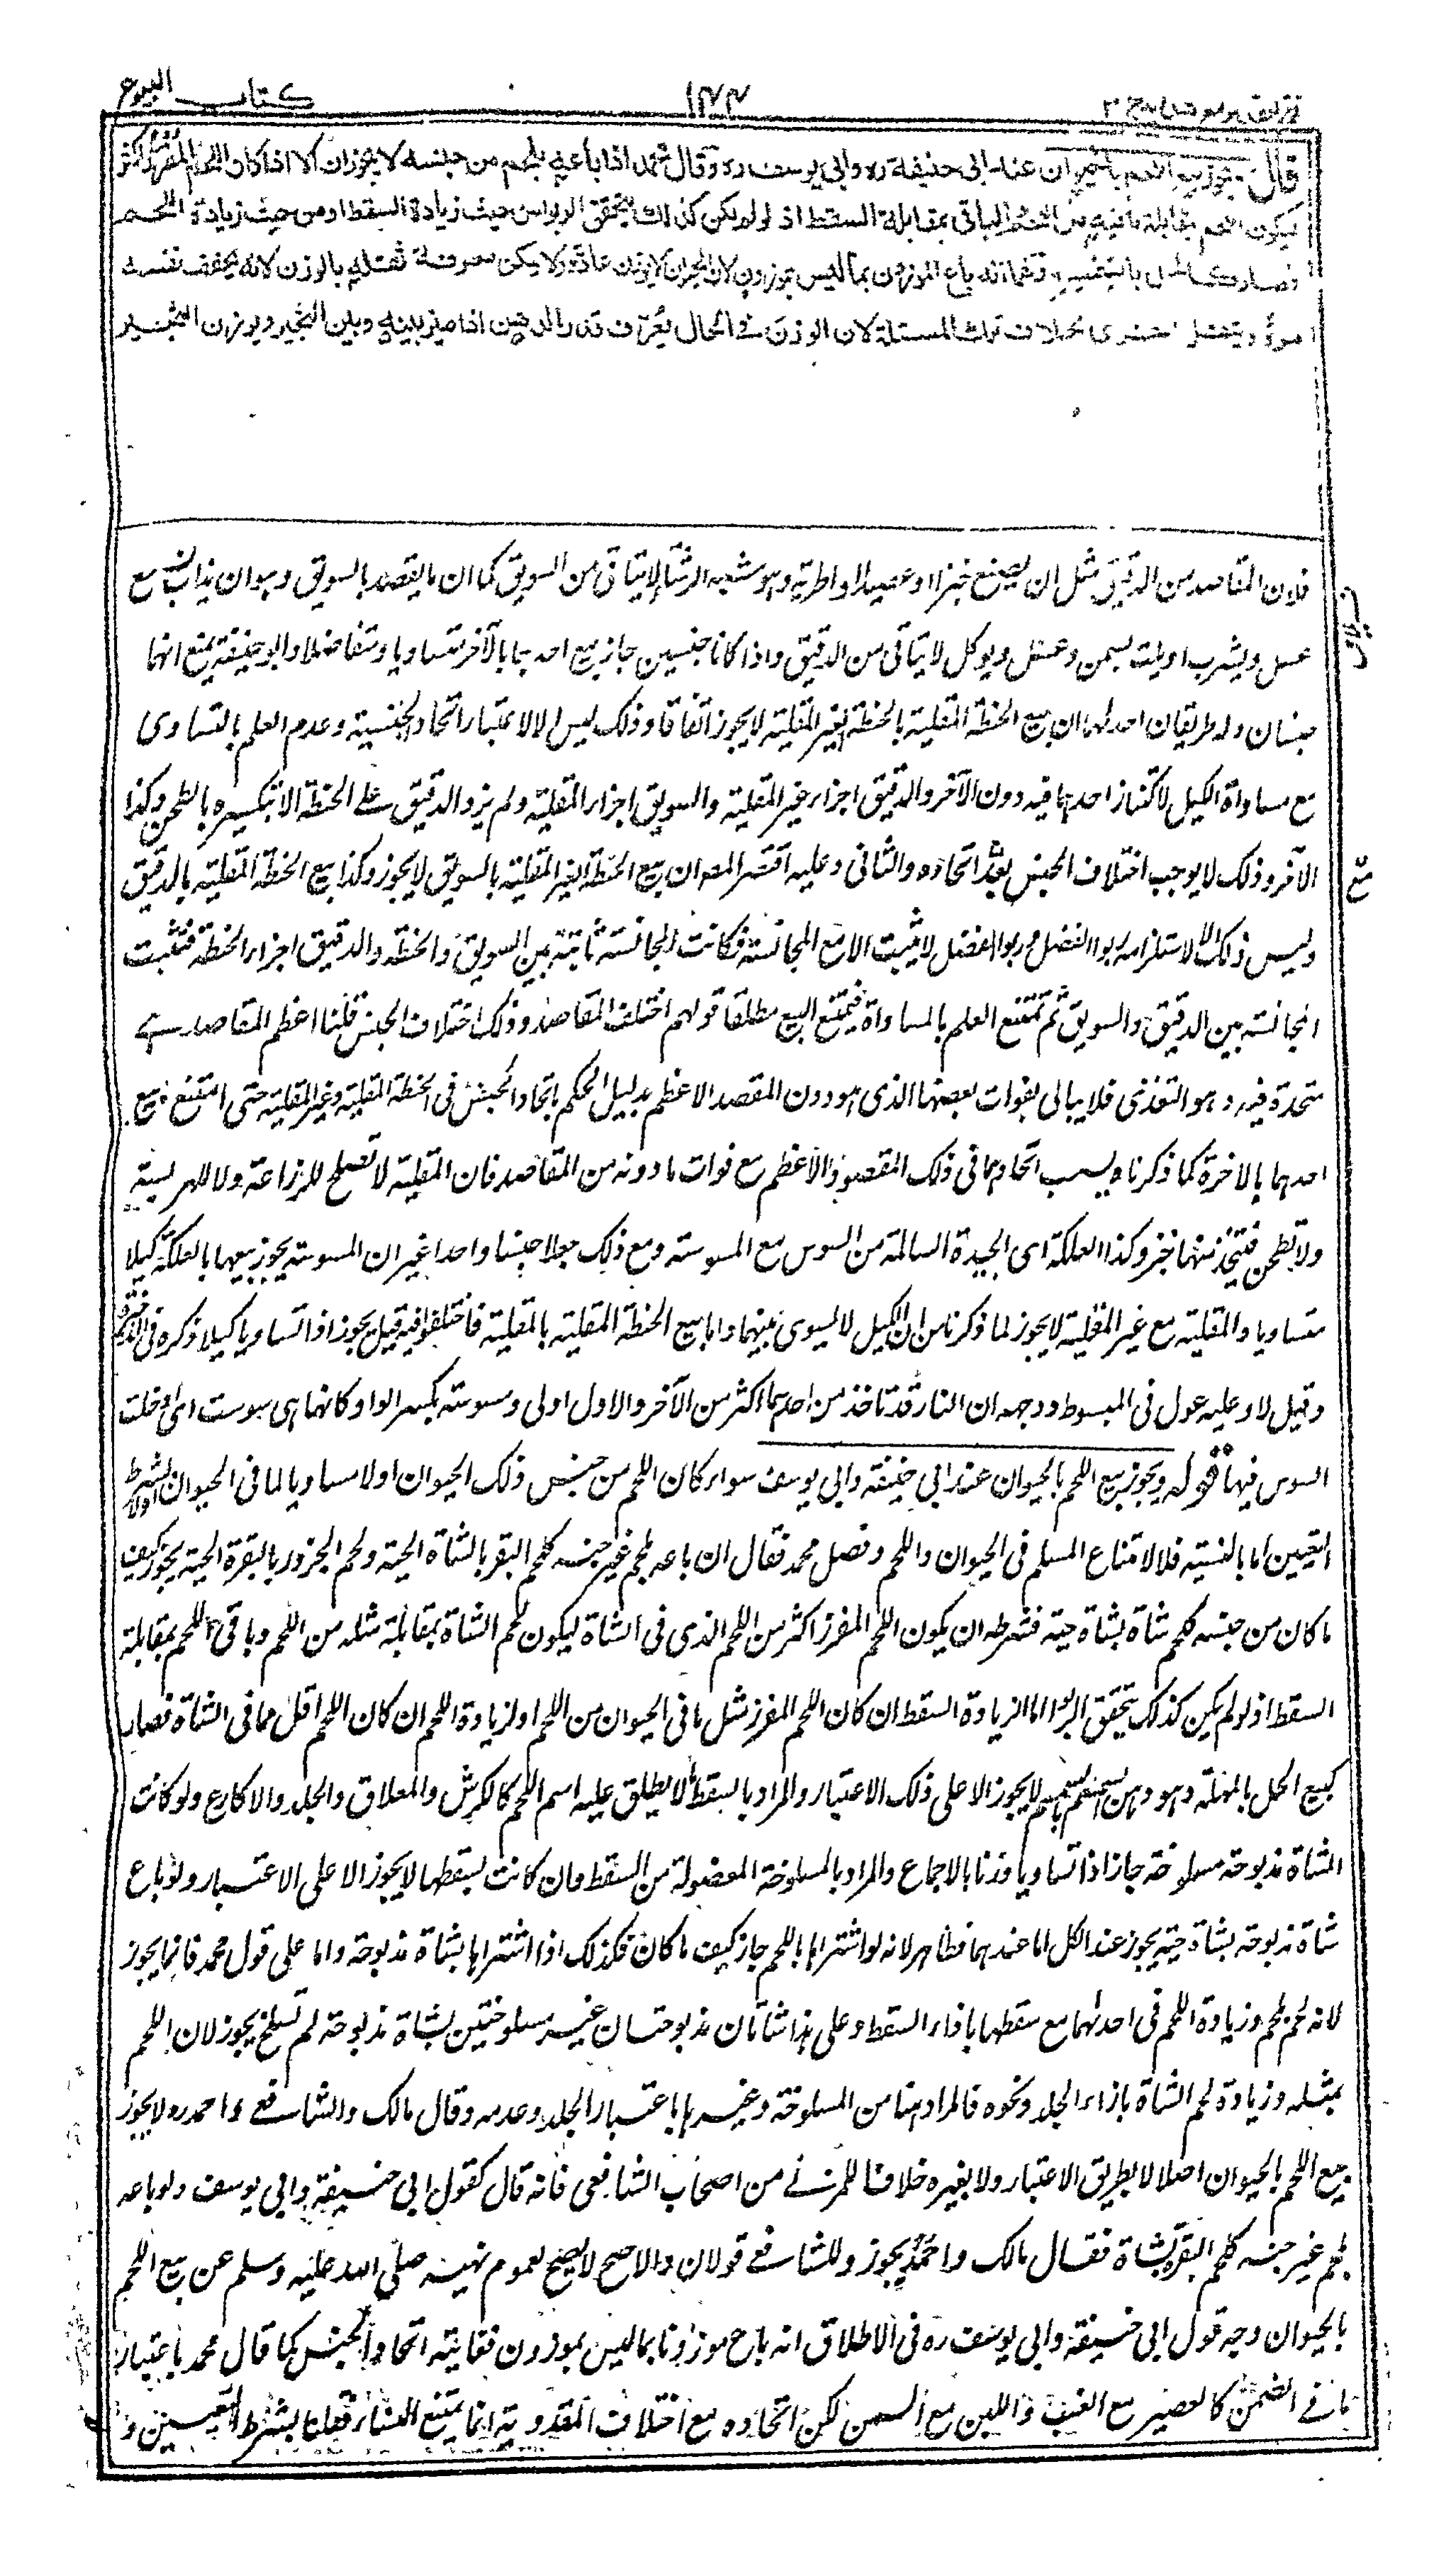 كتاب البيوع
قال ويجوز بيع اللحم بالحيوان عند ابى حنيفة ره وابى يوسف ره وقال محمد اذا باعه بلحم من جنسه لا يجوز ان كلا اذا كان اللحم المفرز اكثر
ليكون اللحم بمقابلة ما فيه من اللحم والباقى بمقابلة السقط اذ لو لم يكن كذلك يتحقق الربوا من حيث زيادة السقط او من حيث زيادة اللحم
فصار كالحل بالسمسم ولهما انه باع الموزون بما ليس بموزون لان الحيوان لا يوزن عادة ولا يمكن معرفة ثقله بالوزن لانه يخفف نفسه
مرة ويثقل اخرى بخلاف تلك المسئلة لان الوزن فى الحال يعرف قدر الدهن اذا ميز بينه وبين الثجير ويوزن الثجير
فلان المقاصد من الدقيق مثل ان يصنع خبزا او عصيدا او اطرية وهو شبه الرشتا لا يتاتى من السويق كما ان ما يقصد بالسويق وهو ان يذاب مع
عسل ويشرب او يلت بسمن وعسل ويوكل لا يتاتى من الدقيق واذا كانا جنسين جاز بيع احدهما بالآخر متساويا ومتفاضلا وابو حنيفة يمنع انهما
جنسان وله طريقان احدهما ان بيع الحنطة المقلية بالحنطة الغير المقلية لا يجوز اتفاقا وذلك ليس الا لاعتبار اتحاد الجنسية وعدم العلم بالتساوى
مع مساواة الكيل لاكتناز احدهما فيه دون الآخر والدقيق اجزاء غير المقلية والسويق اجزاء المقلية ولم يزد الدقيق على الحنطة الا بتكسيره بالطحن وكذا
الآخر وذلك لا يوجب اختلاف الجنس بعد اتحاده والثانى وعليه اقتصر المصه ان بيع الحنطة الغير المقلية بالسويق لا يجوز وكذا بيع الحنطة المقلية بالدقيق
وليس ذلك الا لاستلزامه ربوا الفضل وربوا الفضل لا يثبت الا مع المجانسة فكانت المجانسة ثابتة بين السويق والحنطة والدقيق اجزاء الحنطة فتثبت
المجانسة بين الدقيق والسويق ثم يمتنع العلم بالمساواة فيمتنع البيع مطلقا قولهم اختلف المقاصد وذلك اختلاف الجنس قلنا اعظم المقاصد هے
متحدة فيه وهو التغذى فلا يبالى بفوات بعضها الذى هو دون المقصد الاعظم بدليل الحكم باتحاد الجنس فى الحنطة المقلية وغير المقلية حتى امتنع بيع
احدهما بالاخرة كما ذكرنا وليست اتحادهما فى ذلك المقصود الاعظم مع فوات ما دونه من المقاصد فان المقلية لا تصلح للزراعة ولا للهريسة
ولا تطحن فتتخذ منهما خبز وكذا العلكة اى الجيدة السالمة من السوس مع المسوسة ومع ذلك جعلا جنسا واحدا غير ان المسوسة يجوز بيعها بالعلكة كيلا
متساويا والمقلية مع غير المقلية لا يجوز لما ذكرنا من ان الكيل لا يسوى بينهما واما بيع الحنطة المقلية بالمقلية فاختلفوا فيه قيل يجوز اذا تساويا كيلا ذكره فى الذخيرة
وقيل لا وعليه عول فى المبسوط ووجهه ان النار قد تاخذ من احدهما اكثر من الآخر والاول اولى ومسوسة بكسر الواو كانها هى سوست اى دخلت
السوس فيها قوله ويجوز بيع اللحم بالحيوان عند ابى حنيفة وابى يوسف سواء كان اللحم من جنس ذلك الحيوان اولا مساويا لما فى الحيوان اولا بشرط
التعيين اما بالنسيئة فلا لامتناع السلم فى الحيوان واللحم وفصل محمد فقال ان باعه بلحم غير جنسه كلحم البقر بالشاة الحية ولحم الجزور بالبقرة الحية يجوز كيف
ما كان من جنسه كلحم شاة بشاة حية فشرطه ان يكون اللحم المفرز اكثر من اللحم الذى فى الشاة ليكون لحم الشاة بمقابلة مثله من اللحم وباقى اللحم بمقابلة
السقط اذ لو لم يكن كذلك يتحقق الربوا اما لزيادة السقط ان كان اللحم المفرز مثل ما فى الحيوان من اللحم او لزيادة اللحم ان كان اللحم اقل مما فى الشاة فصار
كبيع الحل بالمهملة وهو دهن السمسم بالسمسم لا يجوز الا على ذلك الاعتبار والمراد بالسقط ما لا يطلق عليه اسم اللحم كالكرش والمعلاق والجلد والاكارع ولو كانت
الشاة مذبوحة مسلوخة جاز اذا تساويا وزنا بالاجماع والمراد بالمسلوخة المفصولة من السقط وان كانت بسقطها لا يجوز الا على الاعتبار ولو باع
شاة مذبوحة بشاة حية يجوز عند الكل اما عندهما فظاهر لانه لو اشتراها باللحم جاز كيف ما كان فكذلك اذا اشتراها بشاة مذبوحة واما على قول محمد فانما يجوز
لانه لحم بلحم وزيادة اللحم فى احدهما مع سقطها باذاء السقط وعلى هذا شاتان مذبوحتان غير مسلوختين بشاة مذبوحة لم تسلخ يجوز لان اللحم
بمثله وزيادة لحم الشاة بازاء الجلد ونحوه فالمراد هنا من المسلوخة وغيرها باعتبار الجلد وعدمه وقال مالك والشافعے واحمد ره لا يجوز
بيع اللحم بالحيوان اصلا لا بطريق الاعتبار ولا بغيره خلافا للمزنے من اصحاب الشافعى فانه قال كقول ابى حنيفة وابى يوسف ولو باعه
بلحم غير جنسه كلحم البقر بشاة فقال مالك واحمد يجوز وللشافعے قولان والاصح لا يصح لعموم نهيه صلى الله عليه وسلم عن بيع اللحم
بالحيوان وجه قول ابى حنيفة وابى يوسف ره فى الاطلاق انه باع موزونا بما ليس بموزون فغايته اتحاد الجنس كما قال محمد باعتبار
مافے الضمن كالعصير مع العنب واللبن مع السمن لكن اتحاده مع اختلاف المقدرية انما يمتنع النساء فقلنا بشرط التعيين و